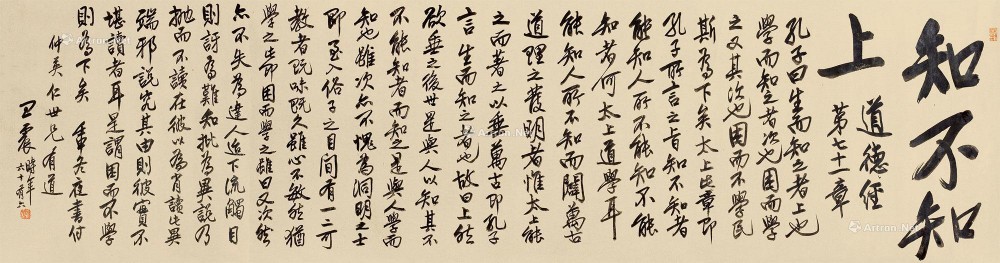 知不知
上
道德經
第七十一章
孔子曰生而知之者上也
學而知之者次也困而學
之又其次也困而不學民
斯為下矣太上此章即
孔子所言之旨知不知者
能知人所不能知不能
知者何太上道學耳
能知人所不知而闡萬古
道理之發明者惟太上能
之而著之以垂萬古即孔子
言生而知之者也故曰上然
欲垂之後世是與人以知其不
不能知者而知之是與人學而
知也雖次亦不愧為洞明之士
即至入俗子之目間有一二可
教者既味既久雖心不敏於猶
學之此即困而學之雖曰又次然
亦不失為達人近下流觸目
則訝為難知批為異說乃
拋而不讀在彼以為背諸此異
端邪說究其由則彼實不
堪讀者耳是謂困而不學
則為下矣 冬夜書付
仲英仁世兄有道
王震時年
六十有六
Artron.Net
Artron.Net